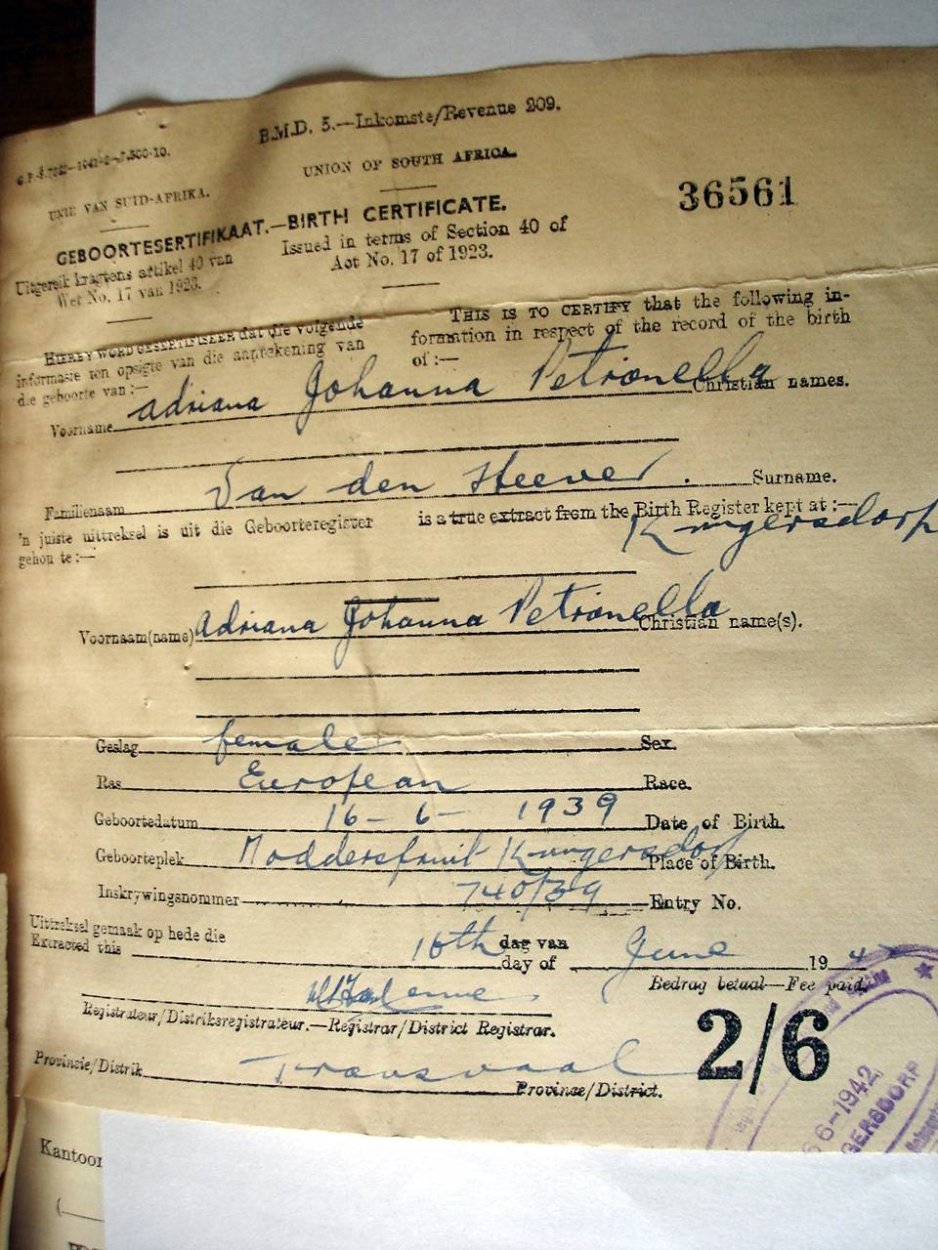 B.M.D. 5.—Inkomste/Revenue 209.
UNIE VAN SUID-AFRIKA.
UNION OF SOUTH AFRICA.
36561
GEBOORTESERTIFIKAAT.—BIRTH CERTIFICATE.
Uitgereik kragtens artikel 40 van
Wet No. 17 van 1923.
Issued in terms of Section 40 of
Act No. 17 of 1923.
HIERBY WORD GESERTIFISEER dat die volgende
informasie ten opsigte van die aantekening van
die geboorte van:—
THIS IS TO CERTIFY that the following in-
formation in respect of the record of the birth
of:—
Voorname adriana Johanna Petronella Christian names.
Familienaam Van den Heever. Surname.
'n juiste uittreksel is uit die Geboorteregister
gehou te:—
is a true extract from the Birth Register kept at:—
Krugersdorp
Voornaam(name) Adriana Johanna Petronella Christian name(s).
Geslag female Sex.
Ras European Race.
Geboortedatum 16-6-1939 Date of Birth.
Geboorteplek Krugersdorp Place of Birth.
Inskrywingsnommer 740/39 Entry No.
Uittreksel gemaak op hede die
Extracted this 16th dag van
day of June 19 4
Bedrag betaal—Fee paid,
Registrateur/Distriksregistrateur.—Registrar/District Registrar.
2/6
Provinsie/Distrik Transvaal Province/District.
6-1942
GERSDORP
Kantoor